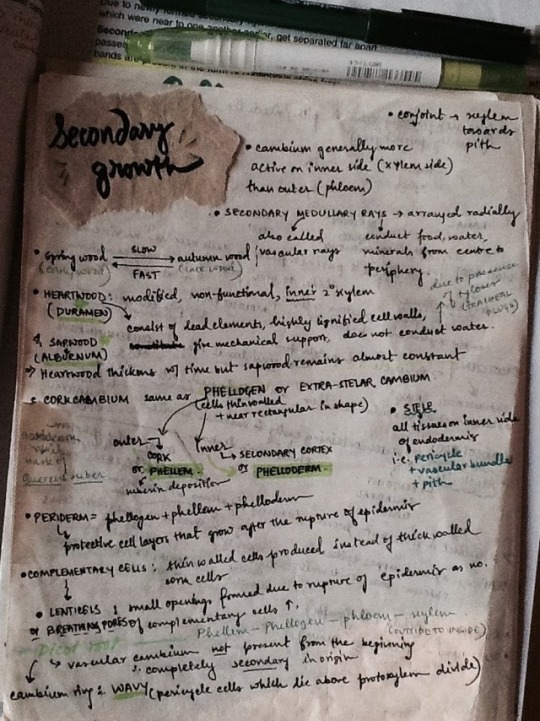 Due to newly formed secondary
which were near to one another earlier, get separated far apart
Second
passes
bands are
Secondary
growth
• conjoint → xylem
towards
pith
• cambium generally more
active on inner side (xylem side)
than outer (phloem)
• SECONDARY MEDULLARY RAYS → arranged radially
also called
vascular rays
conduct food, water,
minerals from centre to
periphery.
• spring wood SLOW autumn wood
FAST
(early wood) (late wood)
due to presence
of tyloses
(TRACHEAL
PLUGS)
• HEARTWOOD: modified, non-functional, inner 2° xylem
(DURAMEN)
consist of dead elements, highly lignified cell walls,
give mechanical support, does not conduct water.
& SAPWOOD
(ALBURNUM)
→ Heartwood thickens w/ time but sapwood remains almost constant
• CORK CAMBIUM same as PHELLOGEN or EXTRA-STELAR CAMBIUM
(cells thin walled
+ near rectangular in shape)
outer → CORK
or PHELLEM
suberin deposition
inner → SECONDARY CORTEX
or PHELLODERM
Quercus suber
• STELE
all tissues on inner side
of endodermis
i.e. pericycle
+ vascular bundles
+ pith
• PERIDERM = phellogen + phellem + phelloderm
↳ protective cell layers that grow after the rupture of epidermis
• COMPLEMENTARY CELLS: thin walled cells produced instead of thick walled
cork cells
• LENTICELS: small openings formed due to rupture of epidermis as no.
or BREATHING PORES of complementary cells ↑.
Phellem - Phellogen - phloem - xylem
(CONTRIBUTE TO INSIDE)
Dicot root
↳ vascular cambium not present from the beginning
∴ completely secondary in origin
cambium ring is WAVY (pericycle cells which lie above protoxylem divide)